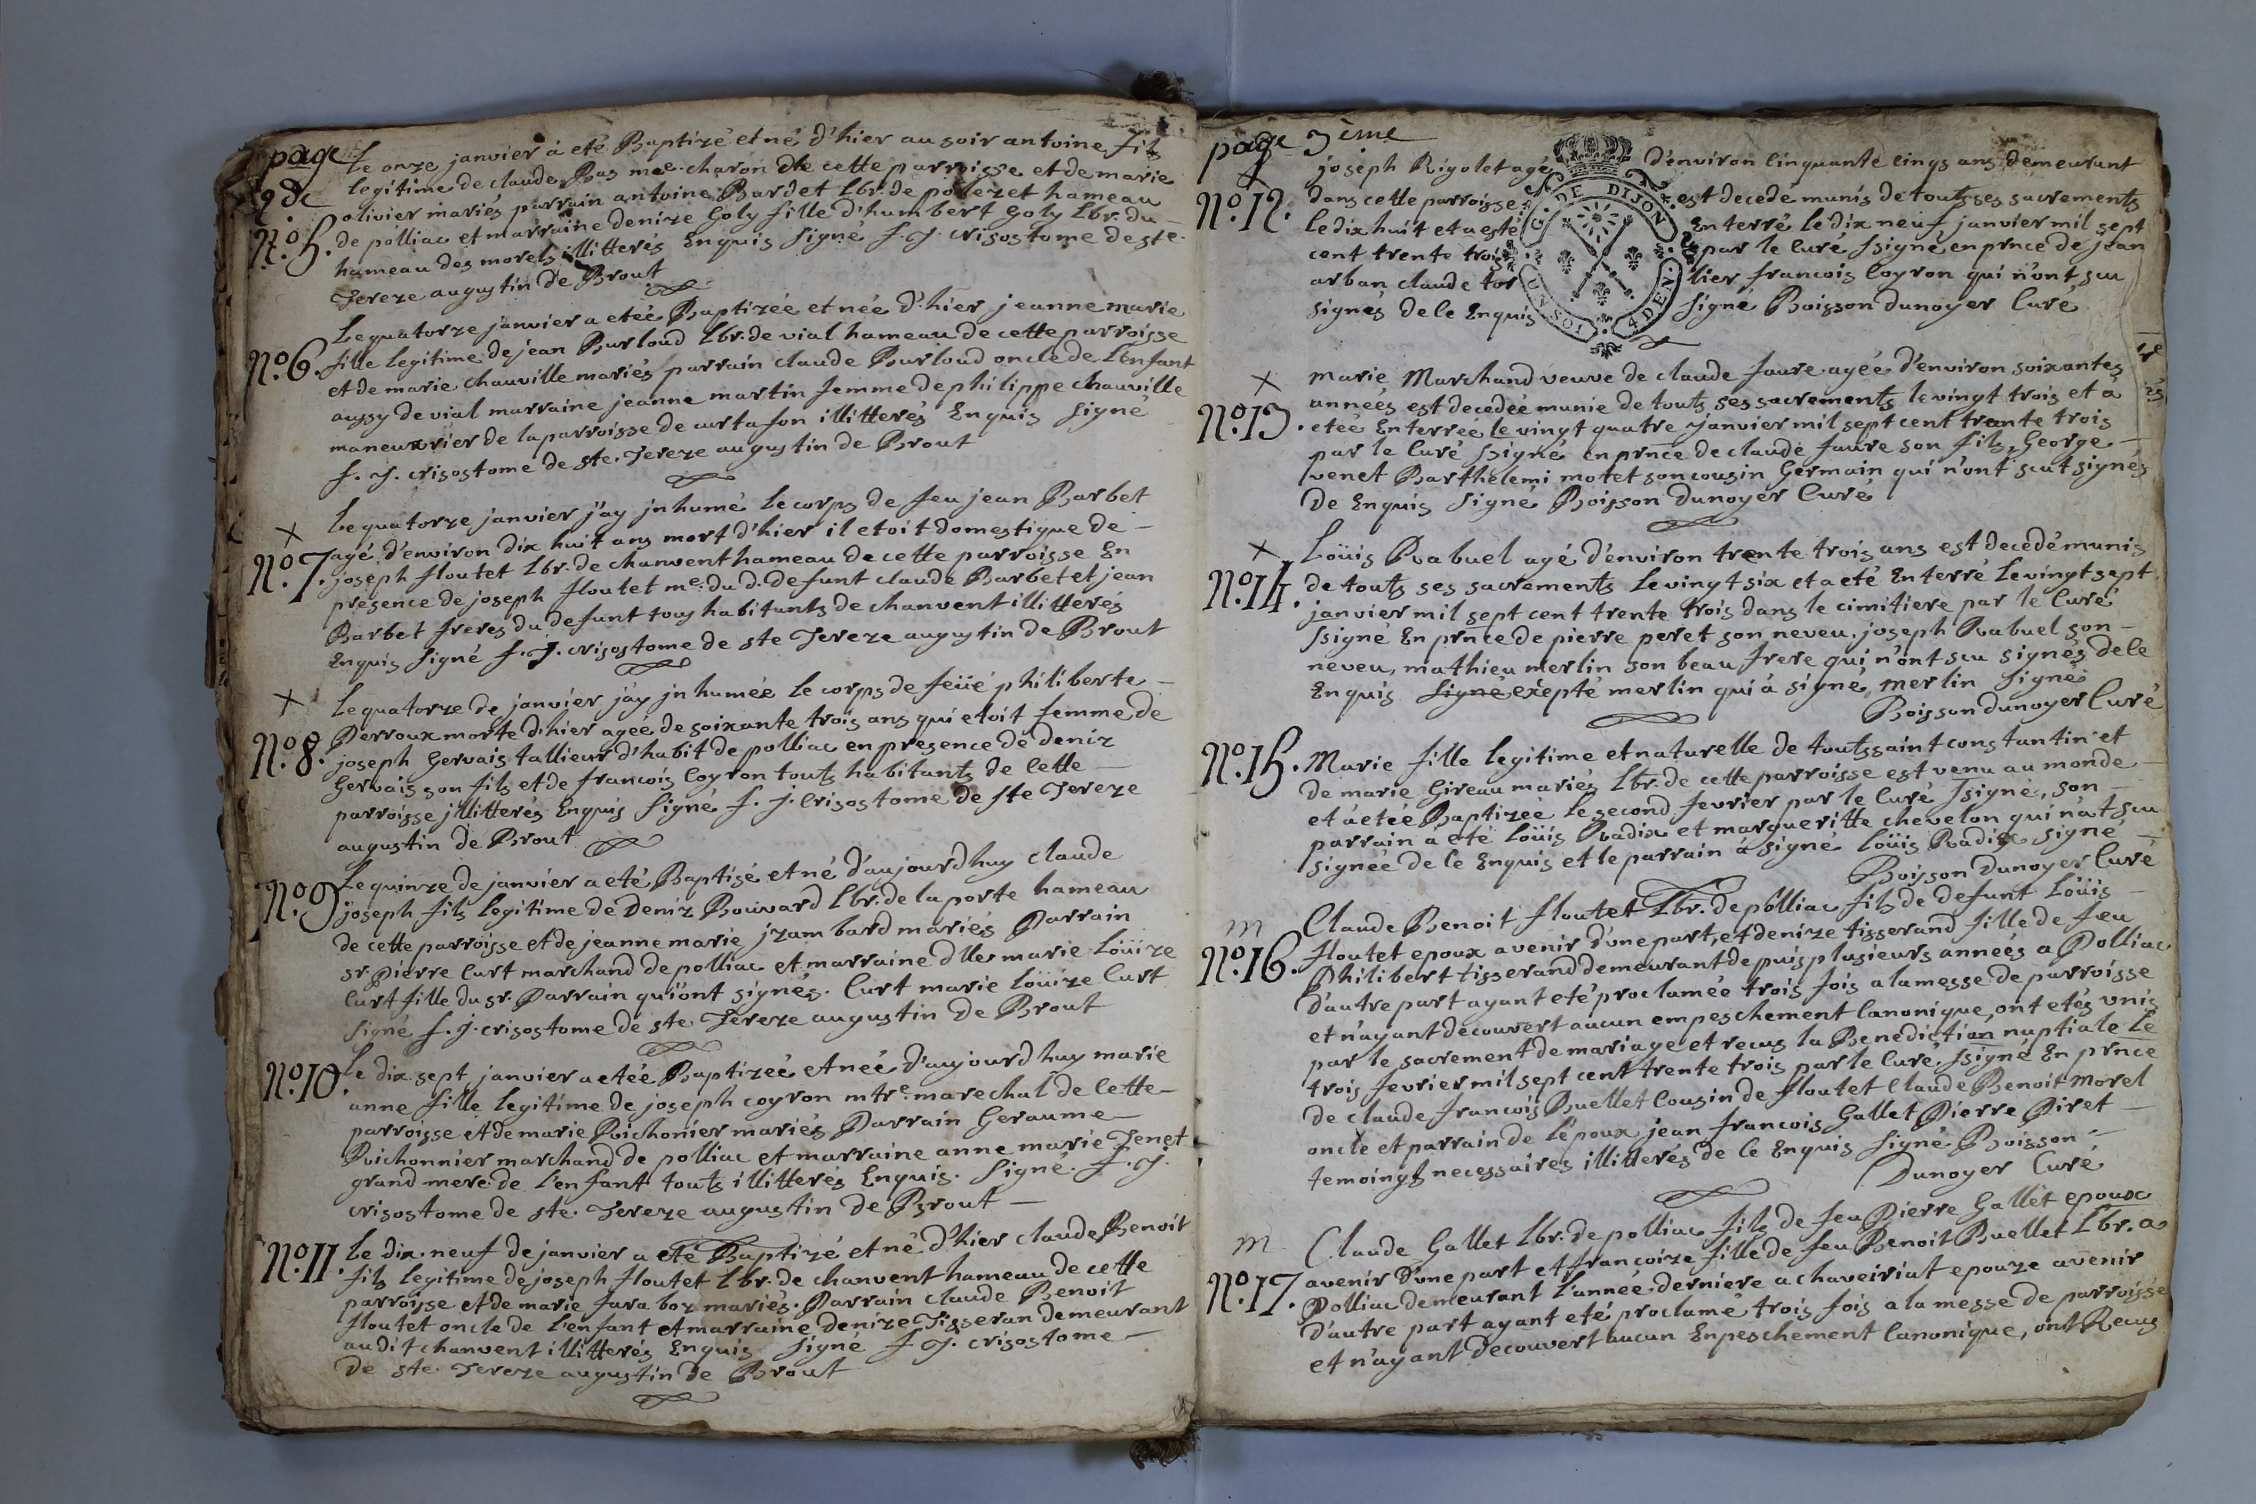 page 2de
Le onze janvier à eté Baptizé et né d'hier au soir antoine fils
legitime de claude Bas me. charon de cette parroisse et de marie
olivier mariés parrain antoine Bardet Lbr. de polezet hameau
N.o 5. de polliac et marraine denize Goly fille d'humbert Goly Lbr. du
hameau des morels illitterés Enquis Signé f. J. crisostome de ste.
Tereze augustin de Brout
Le quatorze janvier a etée Baptizée et née d'hier jeanne marie
N.o 6. fille legitime de jean Burloud Lbr. de vial hameau de cette parroisse
et de marie chauville mariés parrain claude Burloud oncle de L'enfant
aussy de vial marraine jeanne martin femme de philippe chauville
maneuvrier de la parroisse de curtafon illitterés Enquis Signé
f. J. crisostome de ste. Tereze augustin de Brout
x Le quatorze janvier j'ay jnhumé le corps de feu jean Barbet
agé d'environ dix huit ans mort d'hier il etoit domestique de
N.o 7. joseph floutet Lbr. de chanvent hameau de cette parroisse En
présence de joseph floutet me. du d. defunt claude Barbet et jean
Barbet freres du defunt tous habitants de chanvent illitterés
Enquis Signé f. J. crisostome de ste Tereze augustin de Brout
x Le quatorze de janvier j'ay jnhumée le corps de feüe philiberte
Perroux morte d'hier agée de soixante trois ans qui etoit femme de
N.o 8. joseph Gervais tallieur d'habit de polliac en presence de deniz
Gervais son fils et de francois Coyron touts habitants de Cette
parroisse jllitterés Enquis Signé f. J. Crisostome de ste Tereze
augustin de Brout
Le quinze de janvier a eté Baptisé et né d'aujourd huy claude
N.o 9 joseph fils legitime de Deniz Bouvard Lbr. de la porte hameau
de cette parroisse et de jeanne marie jzambard mariés Parrain
sr. Pierre Curt marchand de polliac et marraine dlle marie Loüize
Curt fille du sr. Parrain qui ont signés. Curt marie Loüize Curt
Signé f. J. crisostome de ste. Tereze augustin De Brout
N.o 10. Le dix sept janvier a etée Baptizée et née D'aujourd huy marie
anne fille legitime de joseph coyron mtre. marechal de Cette
parroisse et de marie Puichonier mariés Parrain Geraume
Puichonnier marchand de polliac et marraine anne marie Tenet
grand mere de L'enfant touts illitterés Enquis. Signé. f. J.
crisostome de ste. Tereze augustin de Brout
N.o 11. Le dix neuf de janvier a eté Baptizé et né d'hier claude Benoit
fils legitime de joseph floutet Lbr. de chanvent hameau de cette
parroisse et de marie mariés. Parrain claude Benoit
floutet oncle de L'enfant et marraine denize Tisseran demeurant
audit chanvent illitterés Enquis Signé f J. crisostome
De ste. Tereze augustin de Brout
page 3ème
x joseph Rigolet agé D'environ Cinquante Cinqs ans demeurant
N.o 12. dans cette parroisse est decedé munis de touts ses sacrements
le dix huit et a esté Enterré le dix neuf janvier mil sept
cent trente trois par le Curé ssigné en prnce de jean
arban claude tor lier francois Coyron qui n'ont scu
signés de ce Enquis Signé Boisson dunoyer Curé
G. DE DIJON
4 DEN.
x marie Marchand veuve de claude faure agée d'environ soixantes
années est decedée munie de touts ses sacrements le vingt trois et a
N.o 13. etée Enterrée le vingt quatre janvier mil sept cent trente trois
par le Curé ssigné en prnce de claude faure son fils, George
venet Barthelemi motet son cousin Germain qui n'ont scut signés
De Enquis Signé Boisson Dunoyer Curé
x Loüis Rabuel agé d'environ trente trois ans est decedé munis
N.o 14. de touts ses sacrements le vingt six et a eté Enterré le vingt sept
janvier mil sept cent trente trois dans le cimitiere par le Curé
ssigné En prnce de pierre peret son neveu, joseph Rabuel son
neveu, mathieu merlin son beau frere qui n'ont scu signés de ce
Enquis Signé exepté merlin qui à signé, merlin Signés
Boisson dunoyer Curé
N.o 15. Marie fille legitime et naturelle de toutssaint constantin et
de marie Gireau mariés Lbr. de cette parroisse est venu au monde
et à etée Baptizée Le second fevrier par le Curé ssigné, son
parrain a eté Loüis Radix et margueritte chevelon qui n'at scu
signée de ce Enquis et le parrain à signé Loüis Radix signé
Boisson Dunoyer Curé
m Claude Benoit floutet Lbr. de polliac fils de defunt Loüis
N.o 16. floutet epoux avenir d'une part, et denize tisserand fille de feu
Philibert tisserand demeurant depuis plusieurs années a Polliac
D'autre part ayant eté proclamée trois fois a la messe de parroisse
et n'ayant decouvert aucun empeschement Canonique, ont etés unis
par le sacrement de mariage et recus la Benediction nuptiale Le
trois fevrier mil sept cent trente trois par le Curé ssigné En prnce
de claude francois Buellet Cousin de floutet Claude Benoit Morel
oncle et parrain de l'epoux jean francois Gallet Pierre Piret
temoings necessaires illitterés de Ce Enquis Signé Boisson
Dunoyer Curé
m Claude Gallet Lbr. de polliac fils de feu Pierre Gallet epoux
N.o 17. avenir d'une part et francoize fille de feu Benoit Buellet Lbr. a
Polliac demeurant l'année derniere a chaveiriat epouze avenir
D'autre part ayant eté proclamé trois fois a la messe de parroisse
et n'ayant decouvert aucun Enpeschement Canonique, ont Recus